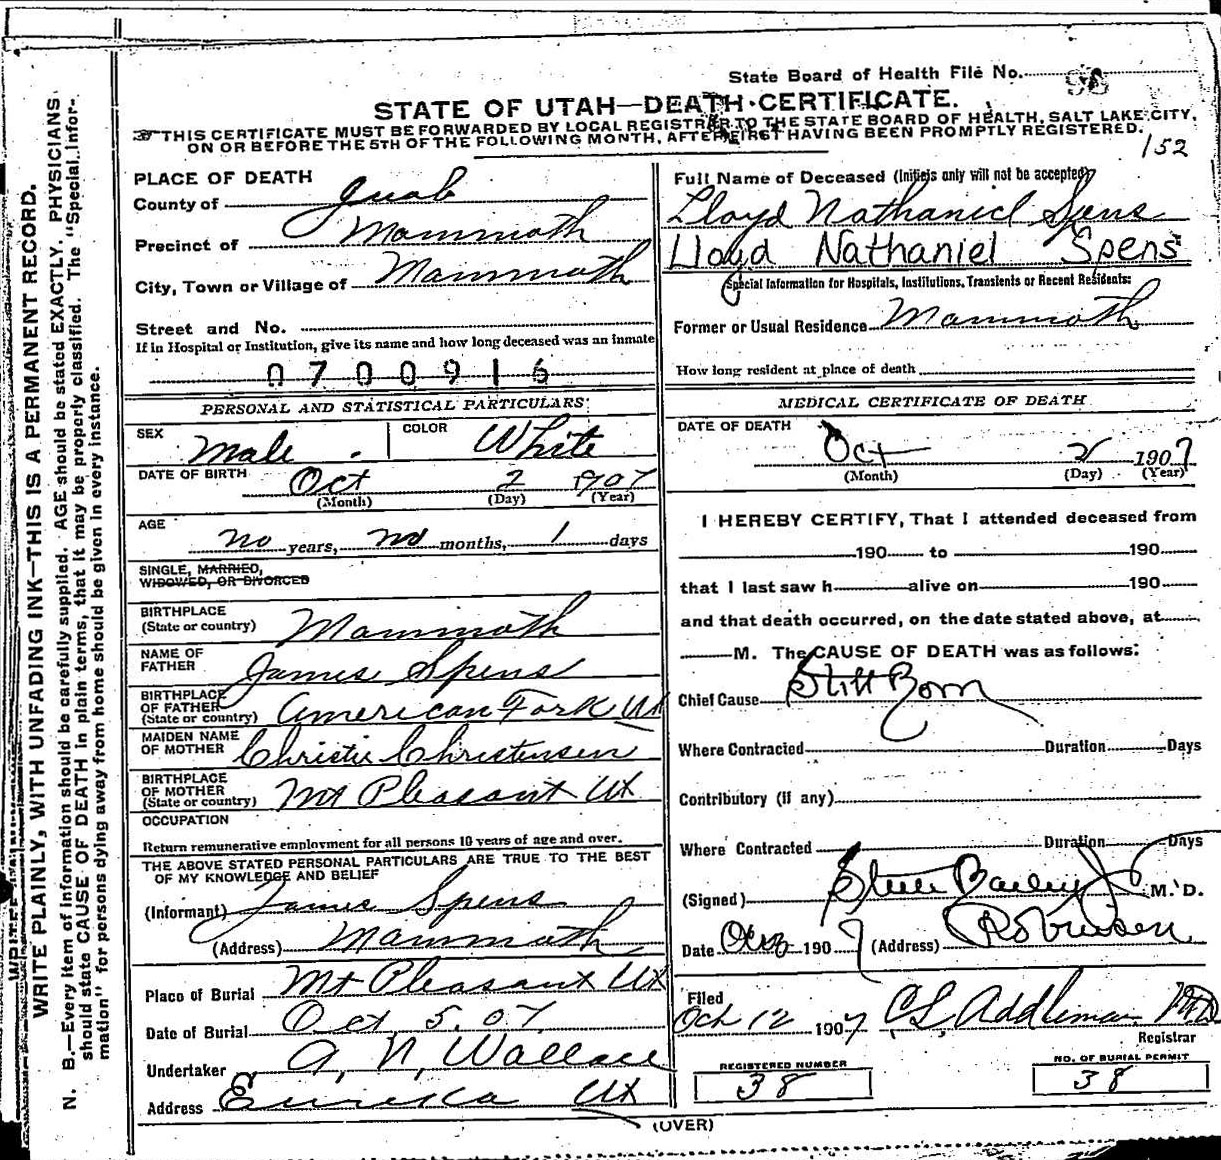 State Board of Health File No. 98
STATE OF UTAH—DEATH CERTIFICATE.
THIS CERTIFICATE MUST BE FORWARDED BY LOCAL REGISTRAR TO THE STATE BOARD OF HEALTH, SALT LAKE CITY,
ON OR BEFORE THE 5TH OF THE FOLLOWING MONTH, AFTER FIRST HAVING BEEN PROMPTLY REGISTERED.
152
WRITE PLAINLY, WITH UNFADING INK—THIS IS A PERMANENT RECORD.
N. B.—Every item of information should be carefully supplied. AGE should be stated EXACTLY. PHYSICIANS
should state CAUSE OF DEATH in plain terms, that it may be properly classified. The "Special Infor-
mation" for persons dying away from home should be given in every instance.
PLACE OF DEATH
County of Juab
Precinct of Mammoth
City, Town or Village of Mammoth
Street and No.
If in Hospital or Institution, give its name and how long deceased was an inmate
0700916
PERSONAL AND STATISTICAL PARTICULARS
SEX Male
COLOR White
DATE OF BIRTH Oct 2 1907
(Month) (Day) (Year)
AGE no years, no months, 1 days
SINGLE, MARRIED,
WIDOWED, OR DIVORCED
BIRTHPLACE
(State or country) Mammoth
NAME OF
FATHER James Spens
BIRTHPLACE
OF FATHER
(State or country) American Fork Ut
MAIDEN NAME
OF MOTHER Christie Christensen
BIRTHPLACE
OF MOTHER
(State or country) Mt Pleasant Ut
OCCUPATION
Return remunerative employment for all persons 10 years of age and over.
THE ABOVE STATED PERSONAL PARTICULARS ARE TRUE TO THE BEST
OF MY KNOWLEDGE AND BELIEF
(Informant) James Spens
(Address) Mammoth
Place of Burial Mt Pleasant Ut
Date of Burial Oct. 5. 07.
Undertaker A. N. Wallace
Address Eureka Ut
Full Name of Deceased (Initials only will not be accepted)
Lloyd Nathaniel Spens
Lloyd Nathaniel Spens
Special Information for Hospitals, Institutions, Transients or Recent Residents:
Former or Usual Residence Mammoth
How long resident at place of death
MEDICAL CERTIFICATE OF DEATH
DATE OF DEATH
Oct 2 1907
(Month) (Day) (Year)
I HEREBY CERTIFY, That I attended deceased from
190 to 190
that I last saw h alive on 190
and that death occurred, on the date stated above, at
M. The CAUSE OF DEATH was as follows:
Chief Cause Still Born
Where Contracted Duration Days
Contributory (if any)
Where Contracted Duration Days
(Signed) Steele Bailey Jr M. D.
Date 1907 (Address) Robinson
Filed
Oct 12 1907 C. L. Addleman MD
Registrar
REGISTERED NUMBER
38
NO. OF BURIAL PERMIT
38
(OVER)